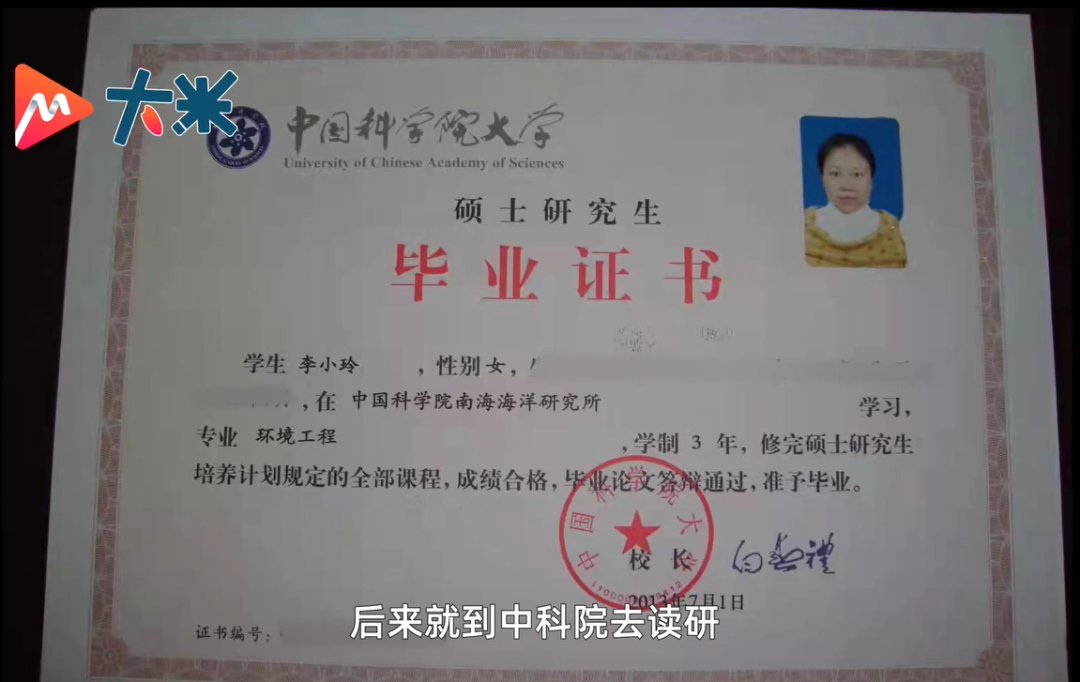 大米
中国科学院大学
University of Chinese Academy of Sciences
硕士研究生
毕业证书
学生 李小玲 ，性别 女，
，在 中国科学院南海海洋研究所 学习，
专业 环境工程 ，学制 3 年，修完硕士研究生
培养计划规定的全部课程，成绩合格，毕业论文答辩通过，准予毕业。
中国科学院大学
校 长 白春礼
2013年7月1日
证书编号：
后来就到中科院去读研